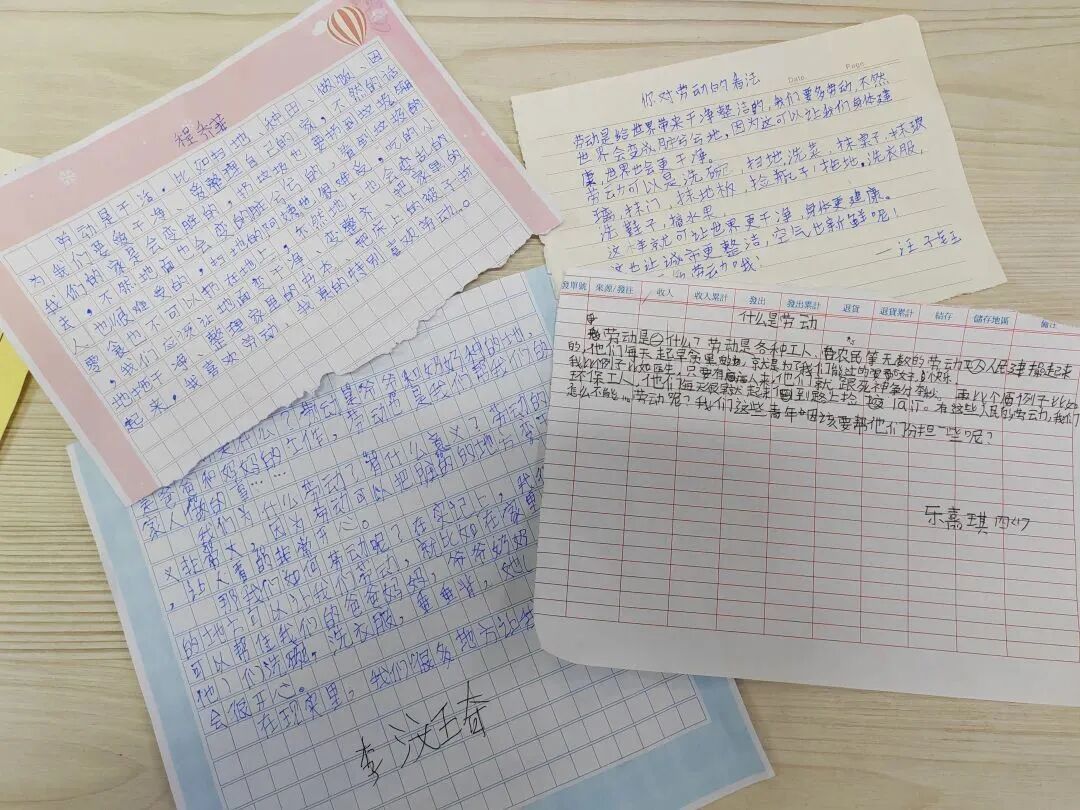 程
劳动是干活，比如扫地、种田、做饭，因
为我们要给干净、要整理自己的家，不然的话
我们的家是会变脏的，扔垃圾也要扔到垃圾桶
去，不然地面也会变的脏亏亏的，首先垃圾的
人也很难受的，扫地的阿姨也很难受，吃的小
零食也不可以扔在地上，不然地上也会变乱的
，我们应该让地面变干净、变整齐、把家里的
地拖干净、整理家里的书本、把床上的被子折
起来，我喜欢劳动，我真的特别喜欢劳动。
你对劳动的看法
Date
Page
劳动是给世界带来干净整洁的，我们要多劳动，不然
世界会变成脏亏亏地，因为这可以让我们身体健
康，世界也会更干净。
劳动可以是洗碗，扫地，洗菜，抹桌子，抹玻
璃，抹门，抹地板，捡瓶子，拖地，洗衣服，
洗鞋子，摘水果。
这样就可让世界更干净，身体更健康。
这也让城市更整洁，空气也新鲜呢！
劳动哦！
—汪子
發單號 來源/發往 收入 收入累計 發出 發出累計 退貨 退貨累計 結存 儲存地區 備注
什么是劳动
劳动是什么？劳动是各种工人、农民等无数的劳动人民建起来
的，他们每天起早贪黑的，就是为了我们能过的更好更快乐
我比个例子比如医生，只要有病人来，他们就跟死神争分夺秒。再比个例子比如
环保工人，他们每天很早就起来到路上捡垃圾。有这些人民的劳动，我们
怎么不能劳动呢？我们这些青年因该要帮他们分担一些呢？
乐嘉琪 四
劳动是爷爷和奶奶扫的地，
是爸爸和妈妈的工作，劳动也是我们帮我们的
家人做的事……
我们为什么劳动？有什么意义？劳动的意
义非常大，因为劳动可以把脏的的地方变
，让人看的非常开心。
那我们如何劳动呢？在实记上，我们
的地方可以让我们劳动，就比如在家里
可以帮住我们的爸爸妈妈，爷爷奶奶
他们洗碗，洗衣服，垂垂背，她
会很开心。
在现实里，我们很多地方让我
李汶